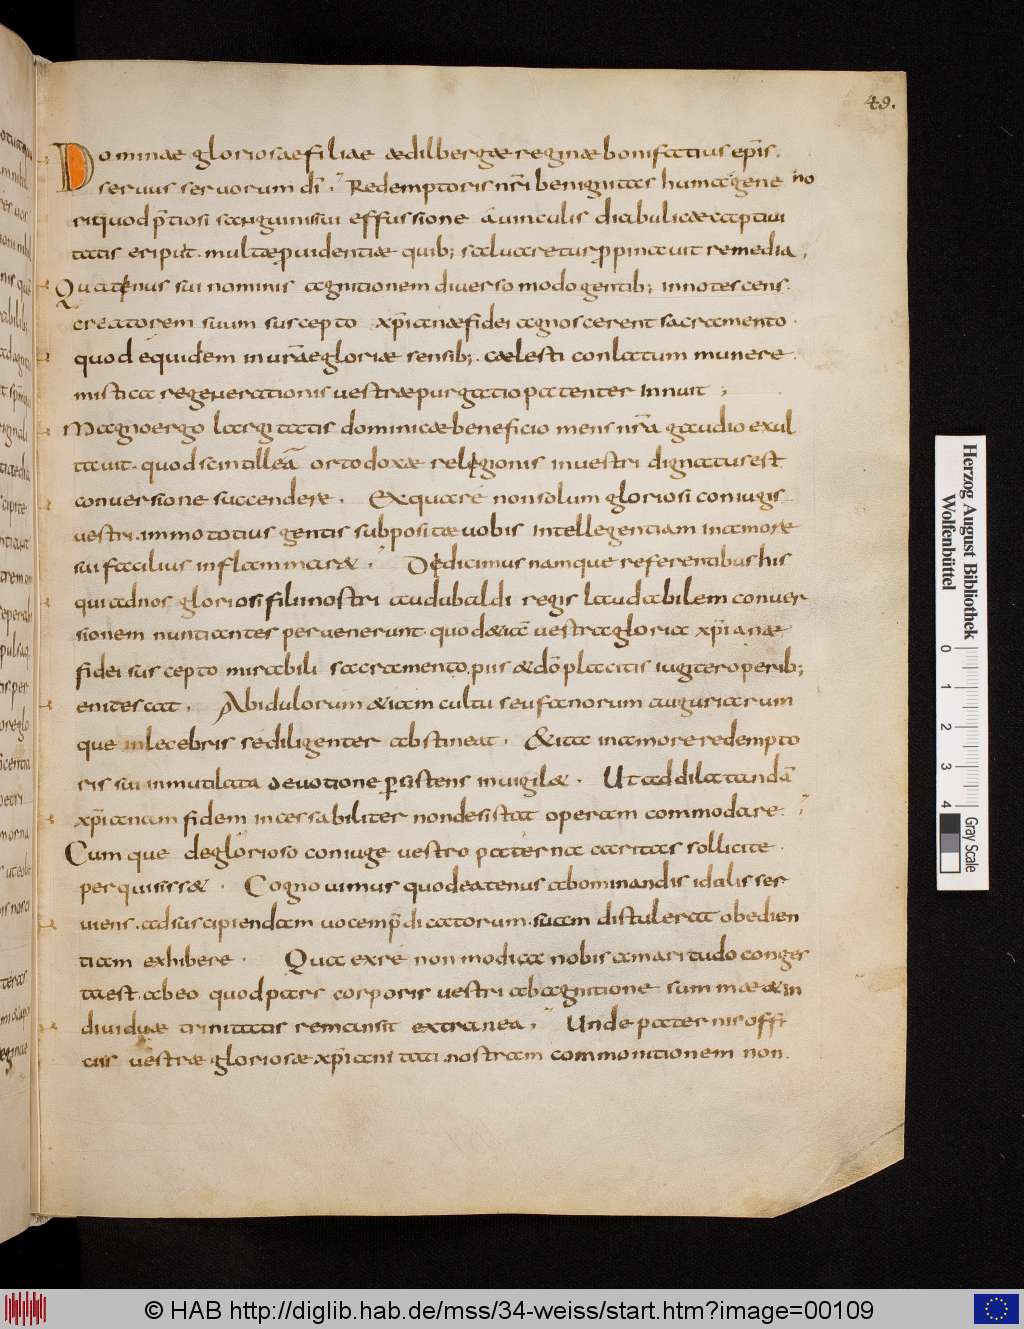 49.
Dominae gloriosae filiae aedilbergae reginae bonifatius ep̄is.
servus servorum dī. Redemptoris nr̄i benignitas humagene no
ritquod p̄tiosi sanguinis sui effussione a vinculis diabulicae captivi
tatis eripuit. multae pvidentiae quib; salvaretur ppinavit remedia,
Quatenus sui nominis agnitionem diverso modo gentib; innotescens.
creatorem suum suscepto xp̄ianae fidei agnoscerent sacramento.
quod equidem in vr̄ae gloriae sensib;. caelesti conlatum munere.
mistica regenerationis vestrae purgatio patenter innuit ;
Magno ergo largitatis dominicae beneficio mens nr̄a gaudio exul
tavit. quod scintilleā ortodoxae religionis in vestri dignatus est
conversione succendere. Ex qua re non solum gloriosi coniugis
vestri. immo totius gentis subpositae vobis intellegentiam in amore
sui facilius inflammaret. Dedicimus namque referentibus his
qui ad nos gloriosi filii nostri audubaldi regis laudabilem conver
sionem nuntiantes pervenerunt. quod &iā vestra gloria xp̄ianae
fidei suscepto mirabili sacramento, piis & dō placitis iugiter operib;
enitescat. Ab idulorum &iam cultu seu fanorum auguriarum
que inlecebris se diligenter abstineat. &ita in amore redempto
ris sui inmutilata devotione p̄sistens invigil&. Ut ad dilatandā
xp̄ianam fidem incessabiliter non desistat operam commodare.
Cumque de glorioso coniuge vestro paterna caritas sollicite.
perquisiss&. Cognovimus quod eatenus abominandis idolis ser
viens. ad suscipiendam vocem p̄dicatorum. suam distulerat obedien
tiam exhibere. Qua ex re non modica nobis amaritudo conges
ta est. ab eo quod pars corporis vestri ab agnitione summae & in
dividuae trinitatis remansit extranea. Unde paternis offi
ciis vestrae gloriosae xp̄ianitati. nostram commonitionem non.
Herzog August Bibliothek
Wolfenbüttel
0 1 2 3 4
Gray Scale
© HAB http://diglib.hab.de/mss/34-weiss/start.htm?image=00109